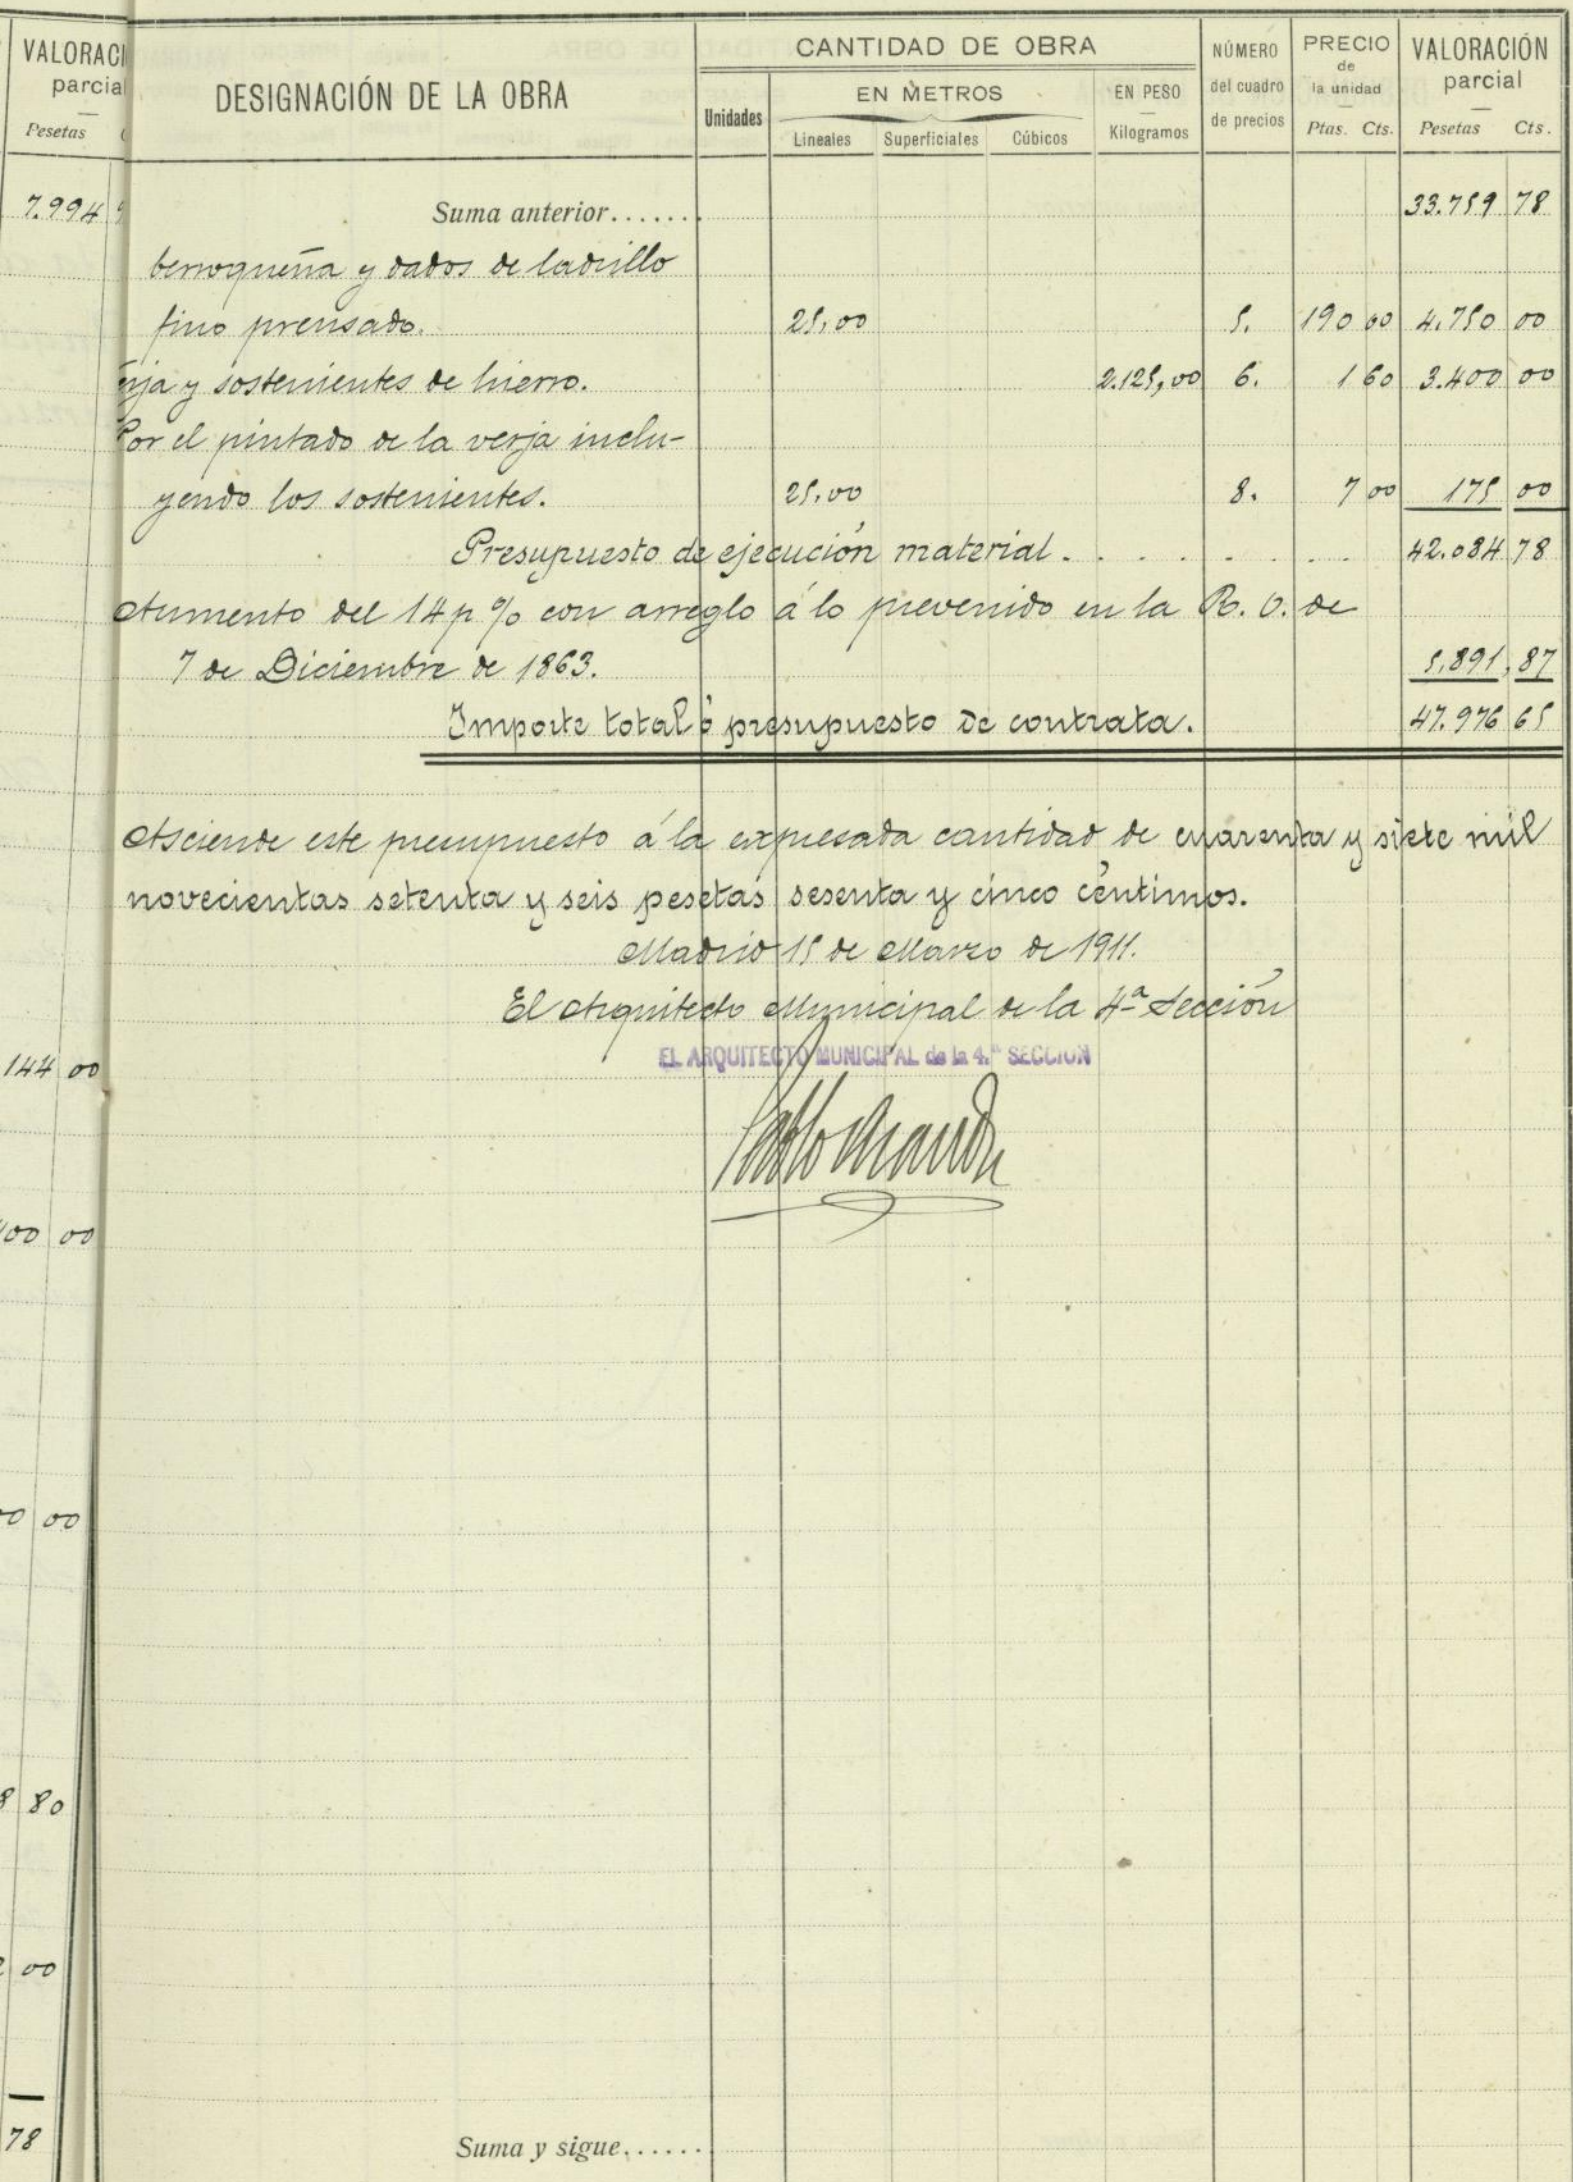 VALORACI
parcial
Pesetas
7.994
144 00
00 00
0 00
8 80
00
78
DESIGNACIÓN DE LA OBRA
CANTIDAD DE OBRA
Unidades
EN METROS
Lineales Superficiales Cúbicos
EN PESO
Kilogramos
NÚMERO
del cuadro
de precios
PRECIO
de
la unidad
Ptas. Cts.
VALORACIÓN
parcial
Pesetas Cts.
Suma anterior...... 33.759 78
berroqueña y dados de ladrillo
fino prensado. 25,00 5. 190 00 4.750 00
erja y sostenientes de hierro. 2.125,00 6. 1 60 3.400 00
Por el pintado de la verja inclu-
yendo los sostenientes. 25,00 8. 7 00 175 00
Presupuesto de ejecución material. . . . . . . . . 42.084 78
Aumento del 14 p % con arreglo á lo prevenido en la R. O. de
7 de Diciembre de 1863. 5.891,87
Importe total ó presupuesto de contrata. 47.976 65
Asciende este presupuesto á la expresada cantidad de cuarenta y siete mil
novecientas setenta y seis pesetas sesenta y cinco céntimos.
Madrid 15 de Marzo de 1911.
El Arquitecto Municipal de la 4ª Sección
EL ARQUITECTO MUNICIPAL de la 4.ª SECCION
Pablo Aranda
Suma y sigue......